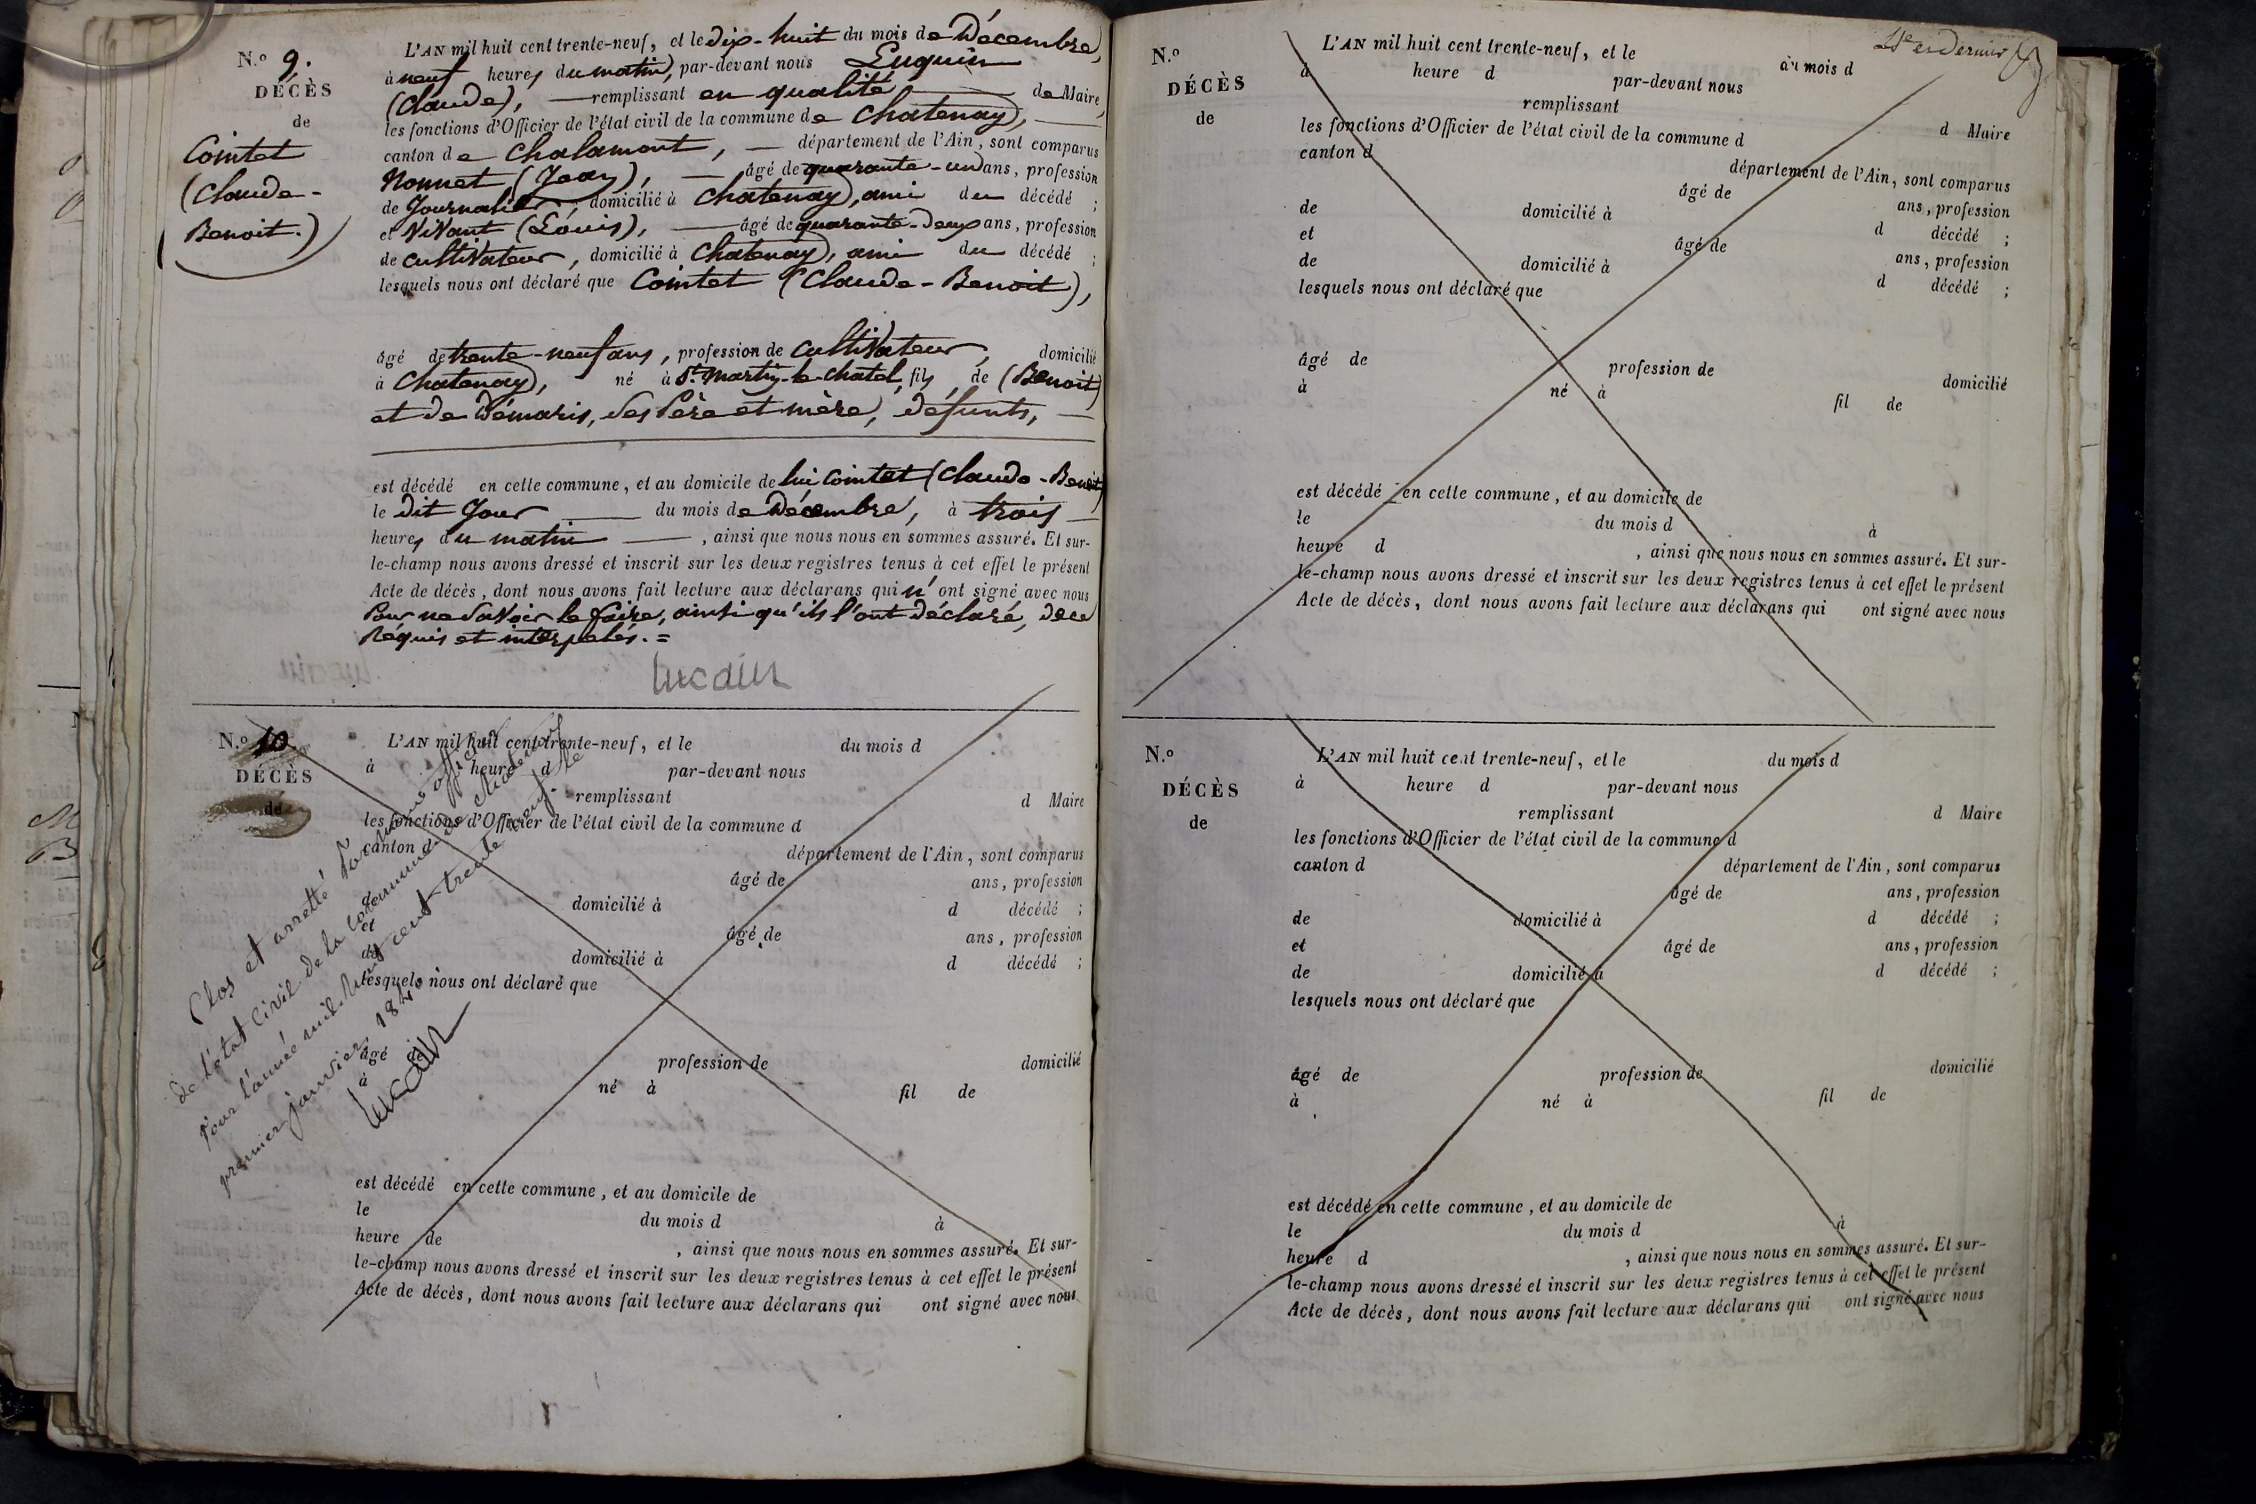 N.º 9.
DÉCÈS
de
Comtet
(Claude-
Benoit.)
L'AN mil huit cent trente-neuf, et le dix-huit du mois de Décembre,
à neuf heures du matin, par-devant nous Luquin
(Claude), — remplissant en qualité — de Maire,
les fonctions d'Officier de l'état civil de la commune de Chatenay, —
canton de Chalamont, — département de l'Ain, sont comparus
Nonnet (Jean), — âgé de quarante-un ans, profession
de Journalier, domicilié à Chatenay, ami du décédé ;
et Vivant (Louis), — âgé de quarante-deux ans, profession
de cultivateur, domicilié à Chatenay, ami du décédé ;
lesquels nous ont déclaré que Comtet (Claude-Benoit),
âgé de trente-neuf ans, profession de cultivateur, domicilié
à Chatenay, né à St. Martin-le-chatel, fils de (Benoit)
et de Démaris, ses Père et mère, défunts, —
est décédé en cette commune, et au domicile de lui Comtet (Claude-Benoit)
le dit Jour — du mois de Décembre, à trois —
heures du matin — , ainsi que nous nous en sommes assuré. Et sur-
le-champ nous avons dressé et inscrit sur les deux registres tenus à cet effet le présent
Acte de décès, dont nous avons fait lecture aux déclarans qui n'ont signé avec nous
Pour ne savoir le faire, ainsi qu'ils l'ont déclaré, de ce
Réquis et interpelés. =
lucain
N.º 10.
DÉCÈS
de
L'AN mil huit cent trente-neuf, et le du mois d
à heure d par-devant nous
remplissant d Maire
les fonctions d'Officier de l'état civil de la commune d
canton d département de l'Ain, sont comparus
âgé de ans, profession
de domicilié à d décédé ;
et âgé de ans, profession
de domicilié à d décédé ;
lesquels nous ont déclaré que
âgé de profession de domicilié
à né à fil de
est décédé en cette commune, et au domicile de
le du mois d à
heure de , ainsi que nous nous en sommes assuré. Et sur-
le-champ nous avons dressé et inscrit sur les deux registres tenus à cet effet le présent
Acte de décès, dont nous avons fait lecture aux déclarans qui ont signé avec nous
Clos et arretté par nous officier
de l'état civil de la commune de chatenay
pour l'année mil huit cent trente neuf le
premier janvier 1840
lucain
22e et dernier
N.º
DÉCÈS
de
L'AN mil huit cent trente-neuf, et le du mois d
à heure d par-devant nous
remplissant d Maire
les fonctions d'Officier de l'état civil de la commune d
canton d département de l'Ain, sont comparus
âgé de ans, profession
de domicilié à d décédé ;
et âgé de ans, profession
de domicilié à d décédé ;
lesquels nous ont déclaré que
âgé de profession de domicilié
à né à fil de
est décédé en cette commune, et au domicile de
le du mois d à
heure d , ainsi que nous nous en sommes assuré. Et sur-
le-champ nous avons dressé et inscrit sur les deux registres tenus à cet effet le présent
Acte de décès, dont nous avons fait lecture aux déclarans qui ont signé avec nous
N.º
DÉCÈS
de
L'AN mil huit cent trente-neuf, et le du mois d
à heure d par-devant nous
remplissant d Maire
les fonctions d'Officier de l'état civil de la commune d
canton d département de l'Ain, sont comparus
âgé de ans, profession
de domicilié à d décédé ;
et âgé de ans, profession
de domicilié à d décédé ;
lesquels nous ont déclaré que
âgé de profession de domicilié
à né à fil de
est décédé en cette commune, et au domicile de
le du mois d à
heure d , ainsi que nous nous en sommes assuré. Et sur-
le-champ nous avons dressé et inscrit sur les deux registres tenus à cet effet le présent
Acte de décès, dont nous avons fait lecture aux déclarans qui ont signé avec nous